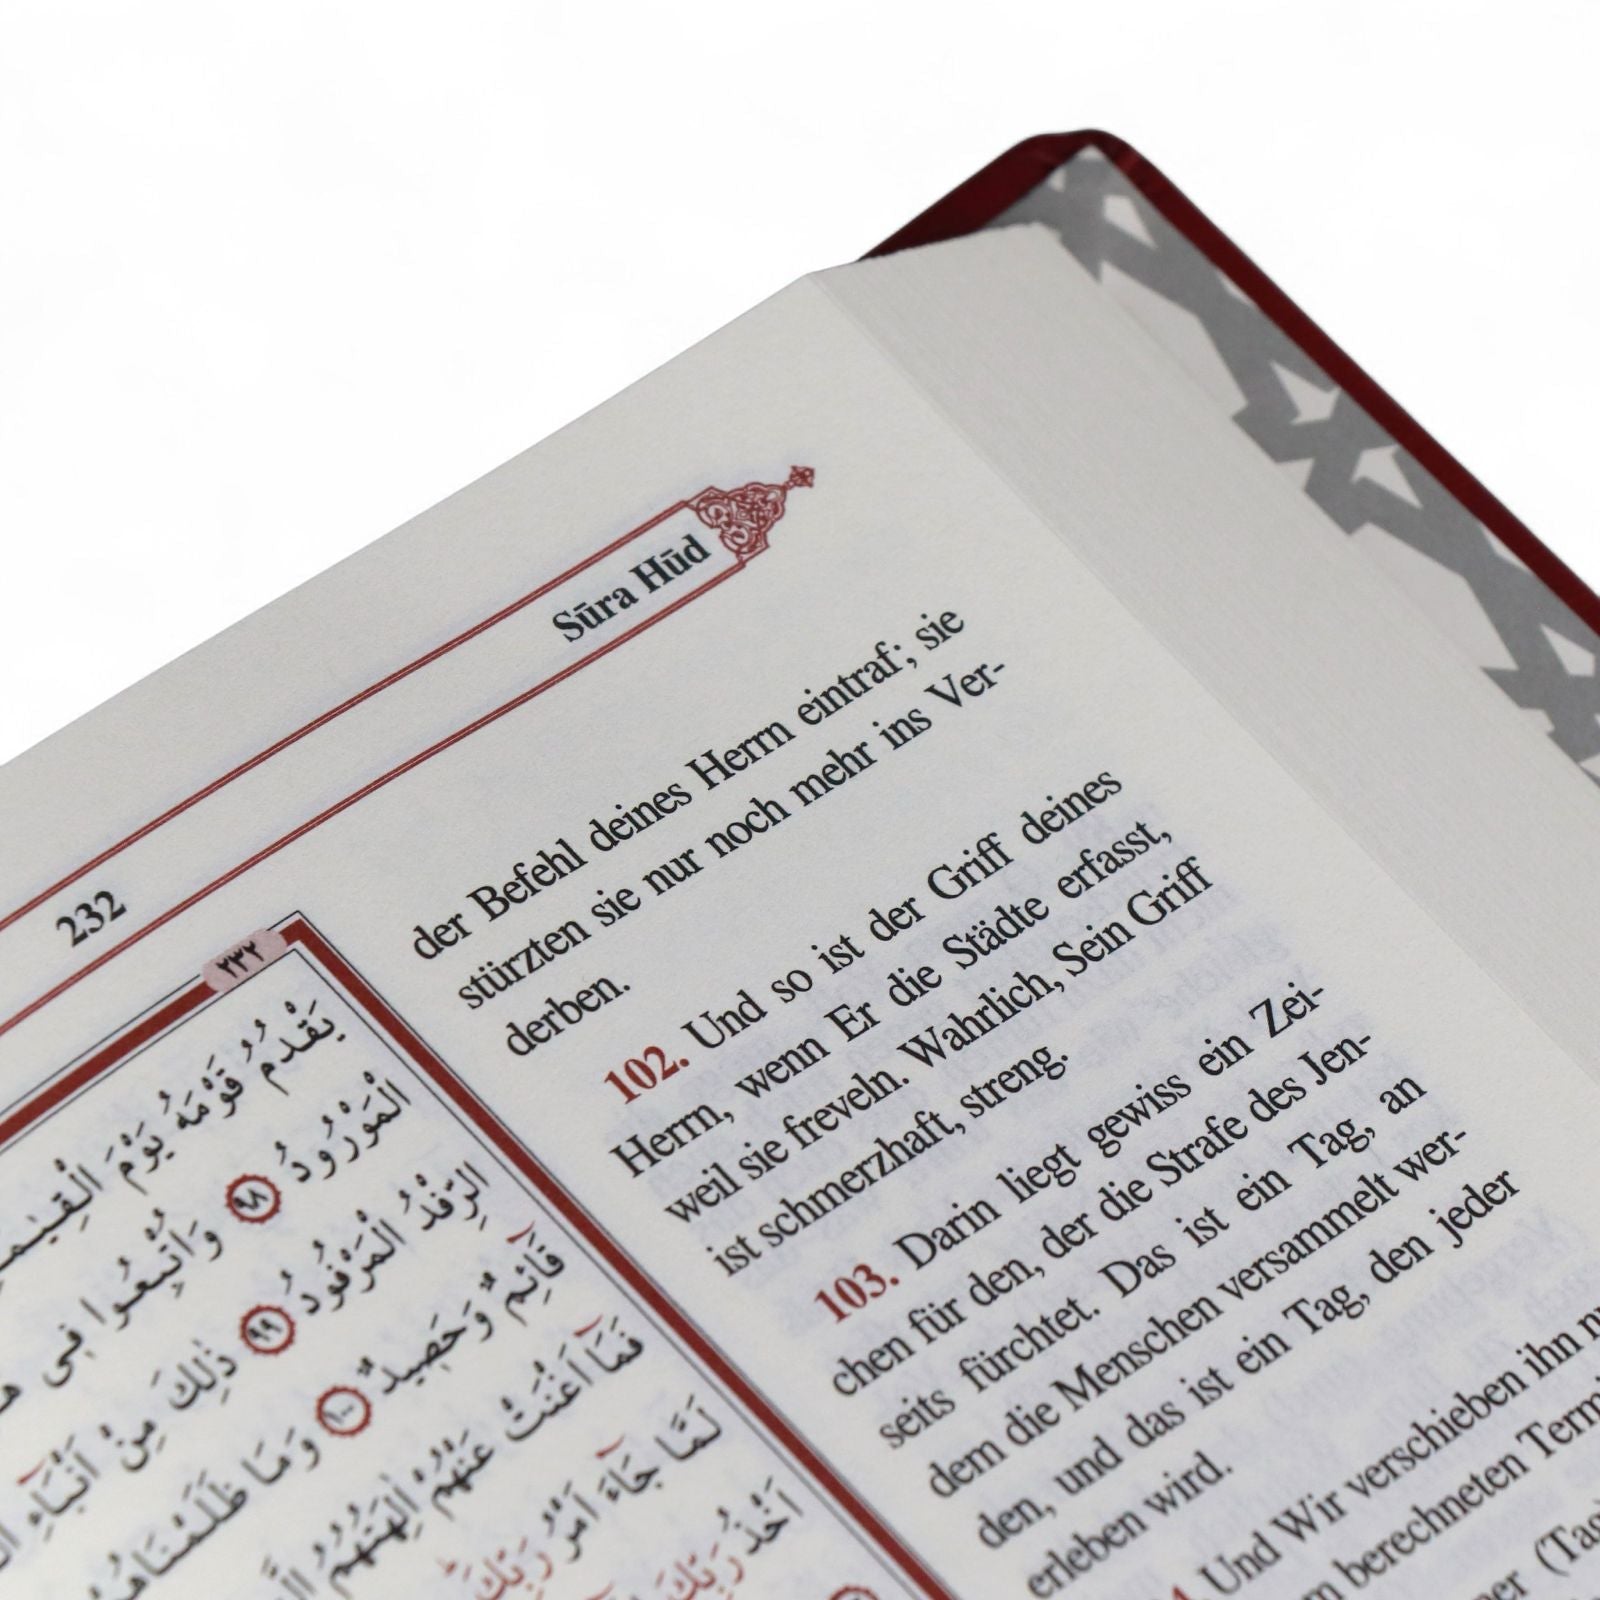 232
Sūra Hūd
der Befehl deines Herrn eintraf; sie
stürzten sie nur noch mehr ins Ver-
derben.
102. Und so ist der Griff deines
Herrn, wenn Er die Städte erfasst,
weil sie freveln. Wahrlich, Sein Griff
ist schmerzhaft, streng.
103. Darin liegt gewiss ein Zei-
chen für den, der die Strafe des Jen-
seits fürchtet. Das ist ein Tag, an
dem die Menschen versammelt wer-
den, und das ist ein Tag, den jeder
erleben wird.
Und Wir verschieben ihn
berechneten
٢٣٢
يَقْدُمُ قَوْمَهُ يَوْمَ
الْمَوْرُودُ ٩٨ وَاُتْبِعُوا فى
الرِّفْدُ الْمَرْفُودُ ٩٩ ذٰلِكَ مِنْ اَنْبَٓاءِ
قَٓائِمٌ وَحَصِيدٌ ١٠٠ وَمَا ظَلَمْنَاهُمْ
فَمَٓا اَغْنَتْ عَنْهُمْ اٰلِهَتُهُمُ
لَمَّا جَٓاءَ اَمْرُ رَبِّكَ
اَخْذُ رَبِّكَ